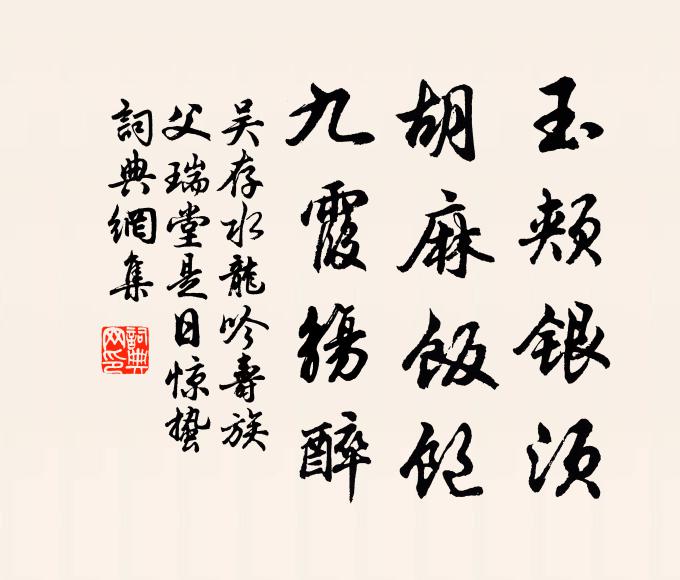 玉颊银须
胡麻饭饱
九霞觞醉
吴存水龍吟壽族
父瑞堂是日惊蛰
詞典網集
詞典網印